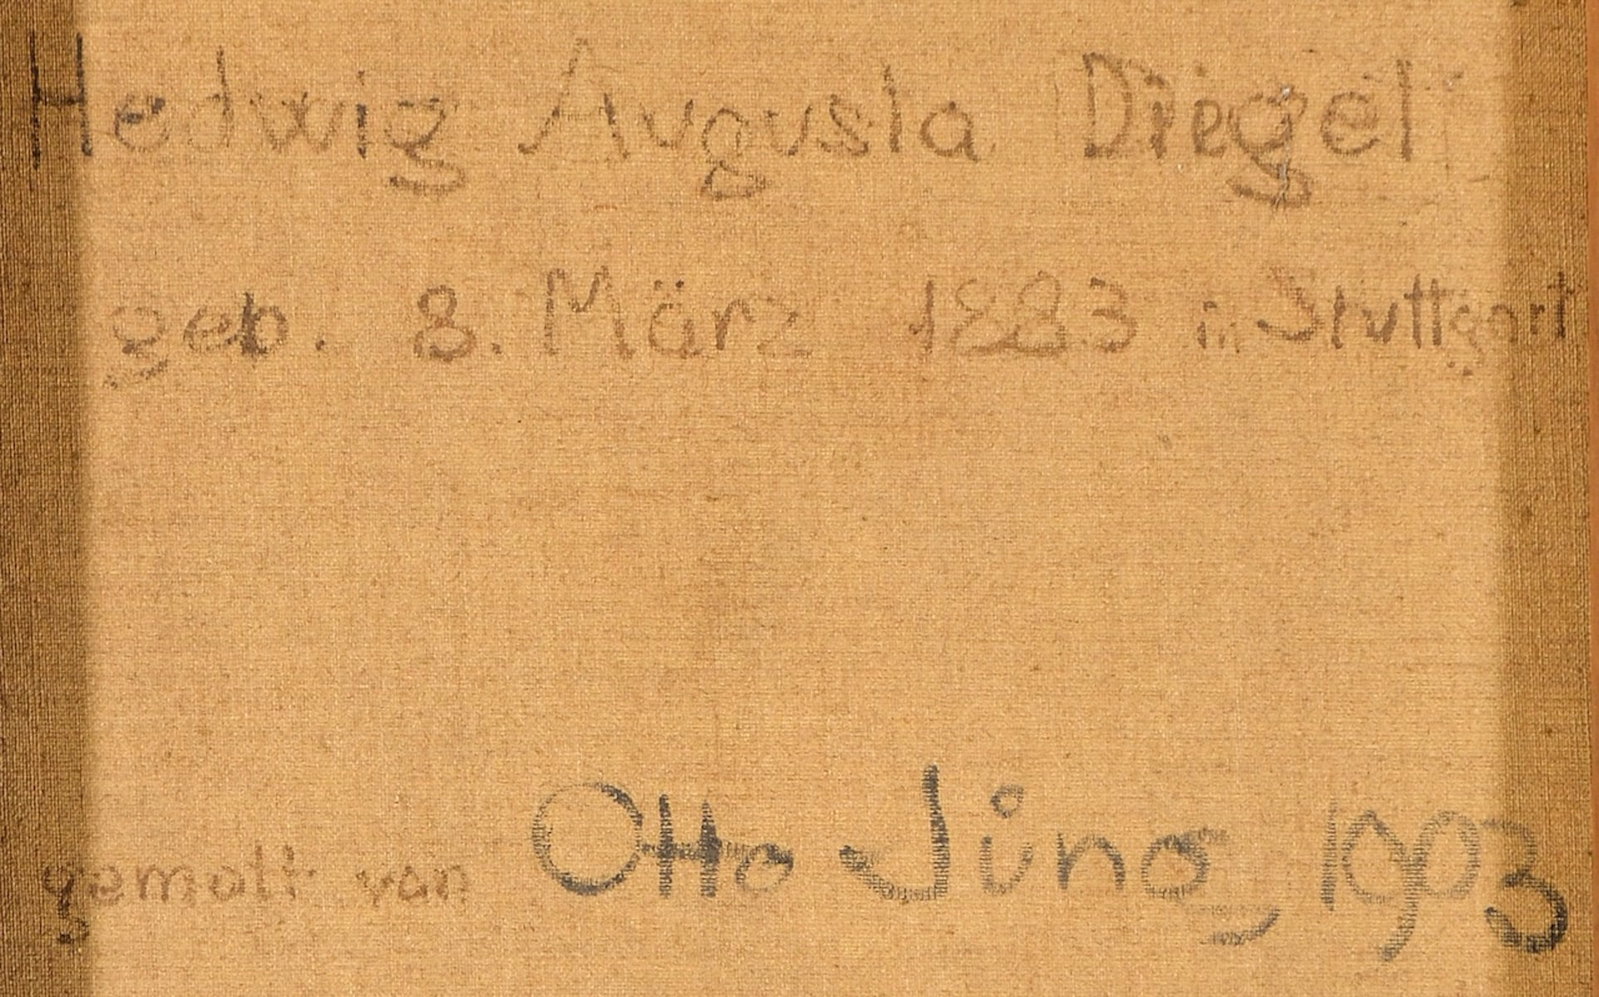 Hedwig Augusta Diegel
geb. 8. März 1883 in Stuttgart
gemalt von Otto Jung 1903